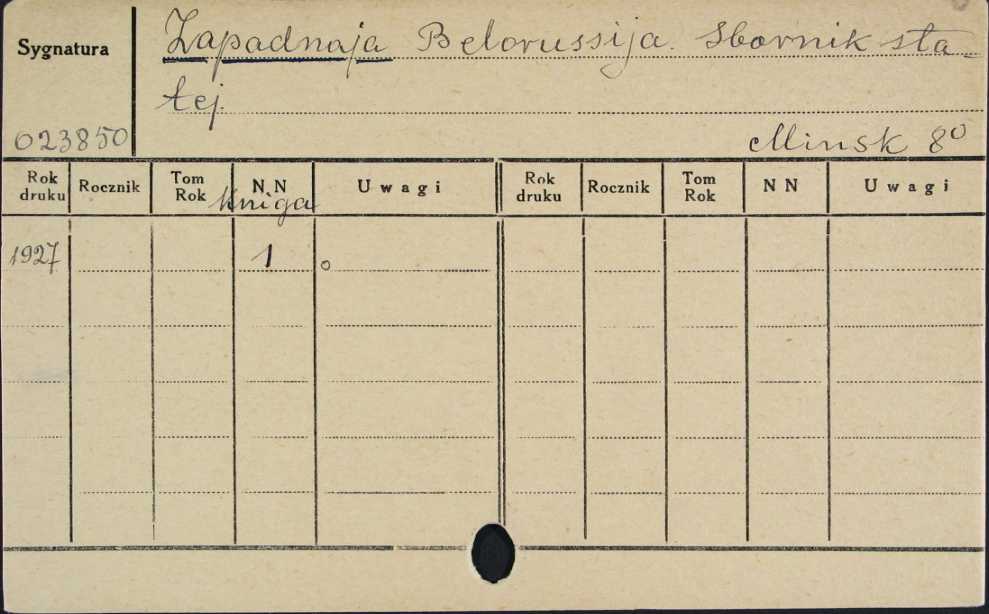 Sygnatura
Zapadnaja Belorussija. Sbornik sta-
tej.
023850
Minsk 8º
Rok druku Rocznik Tom Rok NN Uwagi Rok druku Rocznik Tom Rok NN Uwagi
kniga
1927 1